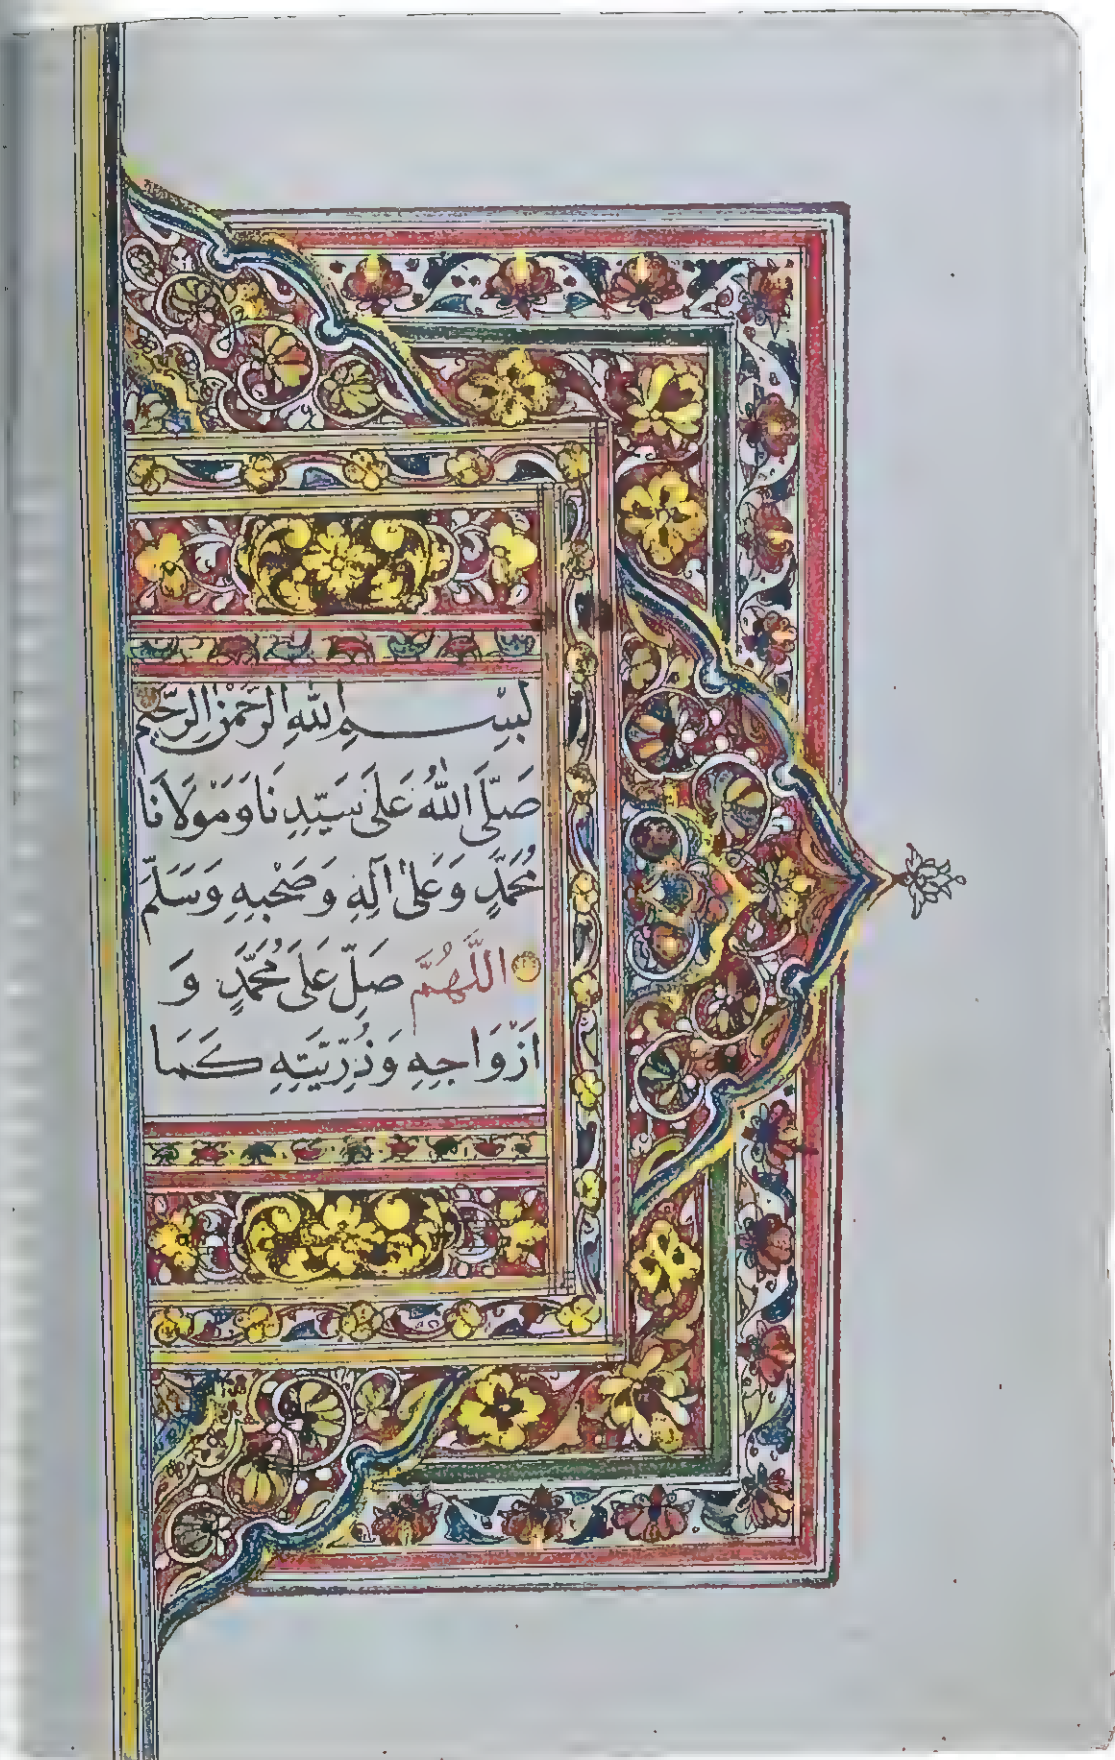 بِسْمِ اللهِ الرَّحْمٰنِ الرَّحِيْمِ
صَلَّى اللهُ عَلَى سَيِّدِنَا وَمَوْلَانَا
مُحَمَّدٍ وَعَلٰى اٰلِهِ وَصَحْبِهِ وَسَلَّمَ
اَللَّهُمَّ صَلِّ عَلَى مُحَمَّدٍ وَ
اَزْوَاجِهِ وَذُرِّيَّتِهِ كَمَا